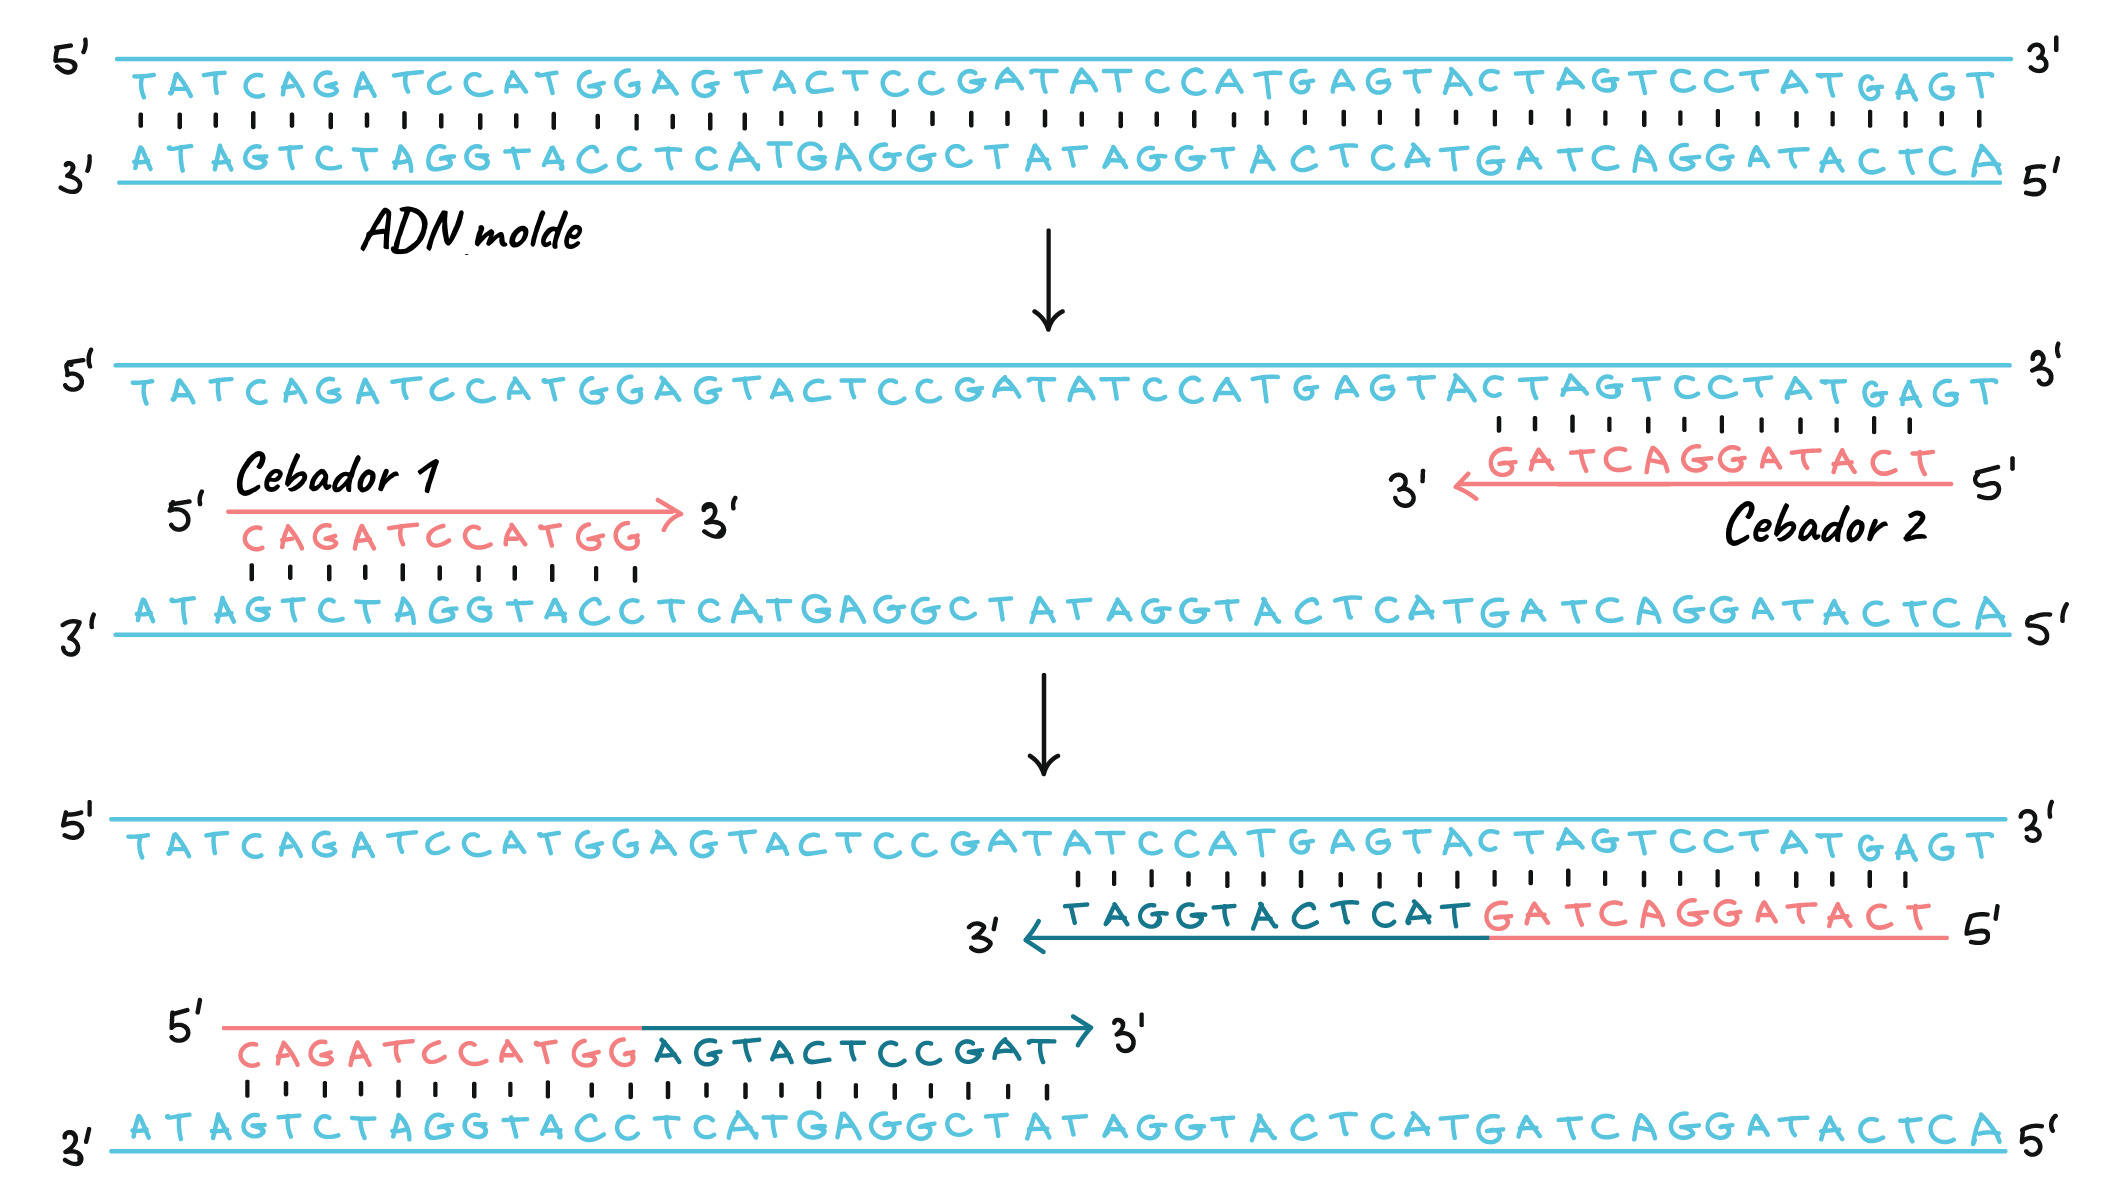 5' TATCAGATCCATGGAGTACTCCGATATCCATGAGTACTAGTCCTATGAGT 3'
3' ATAGTCTAGGTACCTCATGAGGCTATAGGTACTCATGATCAGGATACTCA 5'
ADN molde
5' TATCAGATCCATGGAGTACTCCGATATCCATGAGTACTAGTCCTATGAGT 3'
3' GATCAGGATACT 5'
Cebador 2
Cebador 1
5' CAGATCCATGG 3'
3' ATAGTCTAGGTACCTCATGAGGCTATAGGTACTCATGATCAGGATACTCA 5'
5' TATCAGATCCATGGAGTACTCCGATATCCATGAGTACTAGTCCTATGAGT 3'
3' TAGGTACTCATGATCAGGATACT 5'
5' CAGATCCATGGAGTACTCCGAT 3'
3' ATAGTCTAGGTACCTCATGAGGCTATAGGTACTCATGATCAGGATACTCA 5'